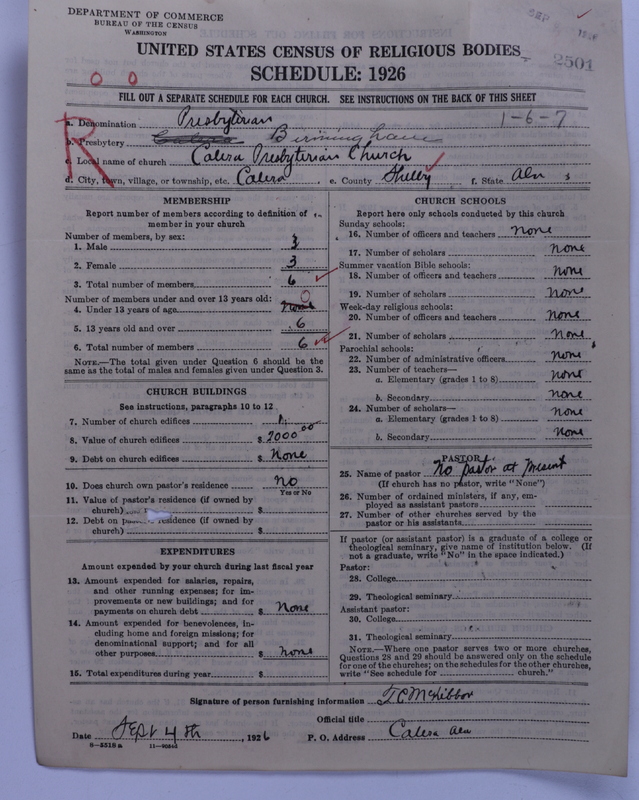 DEPARTMENT OF COMMERCE
BUREAU OF THE CENSUS
WASHINGTON
SEP
2501
UNITED STATES CENSUS OF RELIGIOUS BODIES
SCHEDULE: 1926
0 0
FILL OUT A SEPARATE SCHEDULE FOR EACH CHURCH. SEE INSTRUCTIONS ON THE BACK OF THIS SHEET
R
a. Denomination Presbyterian 1-6-7
b. Presbytery Calera Birmingham
c. Local name of church Calera Presbyterian Church
d. City, town, village, or township, etc. Calera e. County Shelby f. State Ala
MEMBERSHIP
Report number of members according to definition of member in your church
Number of members, by sex:
1. Male 3
2. Female 3
3. Total number of members 6
Number of members under and over 13 years old:
4. Under 13 years of age none 0
5. 13 years old and over 6
6. Total number of members 6
NOTE.—The total given under Question 6 should be the
same as the total of males and females given under Question 3.
CHURCH BUILDINGS
See instructions, paragraphs 10 to 12
7. Number of church edifices 1
8. Value of church edifices $ 2000.00
9. Debt on church edifices $ None
10. Does church own pastor's residence? no
Yes or No
11. Value of pastor's residence (if owned by
church) $
12. Debt on residence (if owned by
church) $
EXPENDITURES
Amount expended by your church during last fiscal year
13. Amount expended for salaries, repairs,
and other running expenses; for im-
provements or new buildings; and for
payments on church debt $ None
14. Amount expended for benevolences, in-
cluding home and foreign missions; for
denominational support; and for all
other purposes $ none
15. Total expenditures during year $
CHURCH SCHOOLS
Report here only schools conducted by this church
Sunday schools:
16. Number of officers and teachers none
17. Number of scholars none
Summer vacation Bible schools:
18. Number of officers and teachers none
19. Number of scholars none
Week-day religious schools:
20. Number of officers and teachers none
21. Number of scholars none
Parochial schools:
22. Number of administrative officers none
23. Number of teachers—
a. Elementary (grades 1 to 8) none
b. Secondary none
24. Number of scholars—
a. Elementary (grades 1 to 8) none
b. Secondary none
PASTOR
25. Name of pastor No pastor at present
(If church has no pastor, write "None")
26. Number of ordained ministers, if any, em-
ployed as assistant pastors
27. Number of other churches served by the
pastor or his assistants
If pastor (or assistant pastor) is a graduate of a college or
theological seminary, give name of institution below. (If
not a graduate, write "No" in the space indicated.)
Pastor:
28. College
29. Theological seminary
Assistant pastor:
30. College
31. Theological seminary
NOTE.—Where one pastor serves two or more churches,
Questions 28 and 29 should be answered only on the schedule
for one of the churches; on the schedules for the other churches,
write "See schedule for church."
Signature of person furnishing information McKibbon
Official title
Date Sept 4th, 1926 P. O. Address Calera Ala
8—5518a 11—9034d